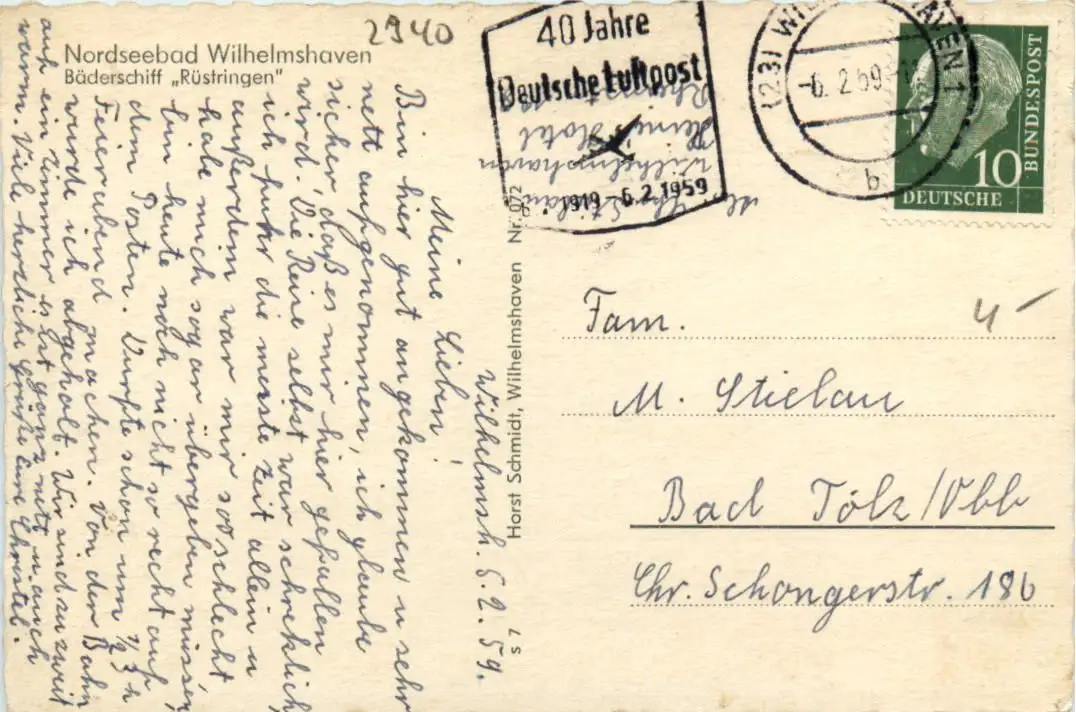 Nordseebad Wilhelmshaven
Bäderschiff „Rüstringen"
2940
Wilhelmsh. 5.2.59.
Meine Lieben!
Bin hier gut angekommen u sehr
nett aufgenommen, ich glaube
sicher, daß es mir hier gefallen
wird. Die Reise selbst war schrecklich,
ich fuhr die meiste Zeit allein u
außerdem war mir so schlecht
habe mich sogar übergeben müssen,
bin heute noch nicht so recht auf
dem Posten. Durfte schon um 1/2 3 h
Feierabend machen. Von der Bahn
wurde ich abgeholt. Wir sind zu zweit
auf ein Zimmer es ist ganz nett u. auch
warm. Viele herzliche Grüße Eure Christel.
Horst Schmidt, Wilhelmshaven Nr. 072
s 7
40 Jahre
Deutsche Luftpost
1919 6.2.1959
Chr. Stielau
Wilhelmshaven
Hotel
(23) WILHELMSHAVEN 1
-6.2.59
b
10
DEUTSCHE
BUNDESPOST
4-
Fam.
M. Stielau
Bad Tölz/Obb
Chr. Schongerstr. 18b